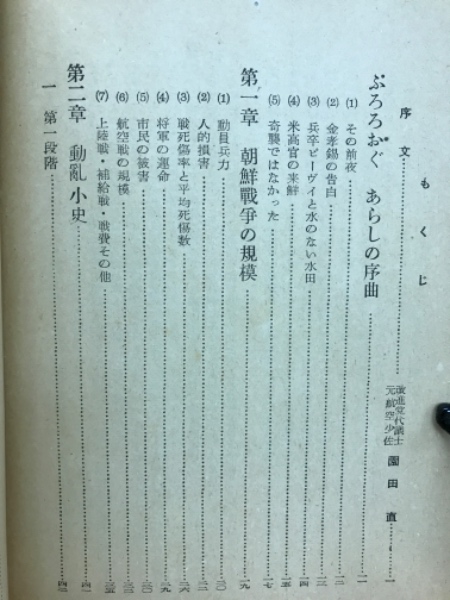 もくじ
序文 改進党代議士 元航空少佐 園田直 一
ぷろろおぐ あらしの序曲 一一
(1) その前夜 一一
(2) 金孝錫の告白 一二
(3) 兵卒ビーヴイと水のない水田 一三
(4) 米高官の来鮮 一四
(5) 奇襲ではなかった 一七
第一章 朝鮮戰爭の規模 一九
(1) 動員兵力 二〇
(2) 人的損害 二二
(3) 戰死傷率と平均死傷数 二六
(4) 将軍の運命 二九
(5) 市民の被害 三〇
(6) 航空戰の規模 三二
(7) 上陸戰・補給戰・戰費その他 三五
第二章 動亂小史 四一
一 第一段階 四二